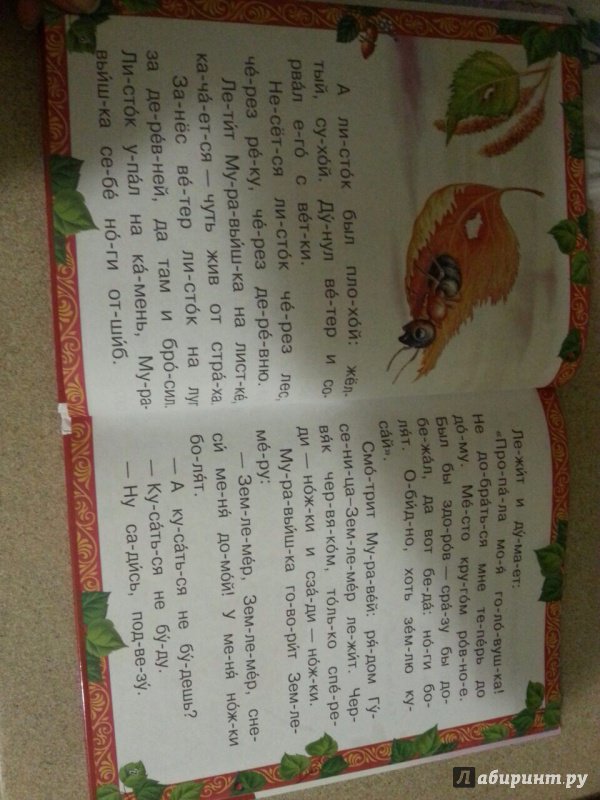 А ли-сто́к был пло-хо́й: жёл-
тый, су-хо́й. Ду́-нул ве́-тер и со-
рва́л е-го́ с ве́т-ки.
Не-сёт-ся ли-сто́к че́-рез лес,
че́-рез ре́-ку, че́-рез де-ре́-вню.
Ле-ти́т Му-ра-вьи́ш-ка на лист-ке́,
ка-ча́-ет-ся — чуть жив от стра́-ха.
За-нёс ве́-тер ли-сто́к на луг
за де-ре́в-ней, да там и бро́-сил.
Ли-сто́к у-па́л на ка́-мень, Му-ра-
вьи́ш-ка се-бе́ но́-ги от-ши́б.
Ле-жи́т и ду́-ма-ет:
«Про-па́-ла мо-я́ го-ло́-вуш-ка!
Не до-бра́ть-ся мне те-пе́рь до
до́-му. Ме́-сто кру-го́м ро́в-но-е.
Был бы здо-ро́в — сра́-зу бы до-
бе-жа́л, да вот бе-да́: но́-ги бо-
ля́т. О-би́д-но, хоть зе́м-лю ку-
са́й».
Смо́-трит Му-ра-ве́й: ря́-дом Гу́-
се-ни-ца-Зем-ле-ме́р ле-жи́т. Чер-
вя́к чер-вя-ко́м, то́ль-ко спе́-ре-
ди — но́ж-ки и сза́-ди — но́ж-ки.
Му-ра-вьи́ш-ка го-во-ри́т Зем-ле-
ме́-ру:
— Зем-ле-ме́р, Зем-ле-ме́р, сне-
си́ ме-ня́ до-мо́й! У ме-ня́ но́ж-ки
бо-ля́т.
— А ку-са́ть-ся не бу́-дешь?
— Ку-са́ть-ся не бу́-ду.
— Ну са-ди́сь, под-ве-зу́.
Лабиринт.ру